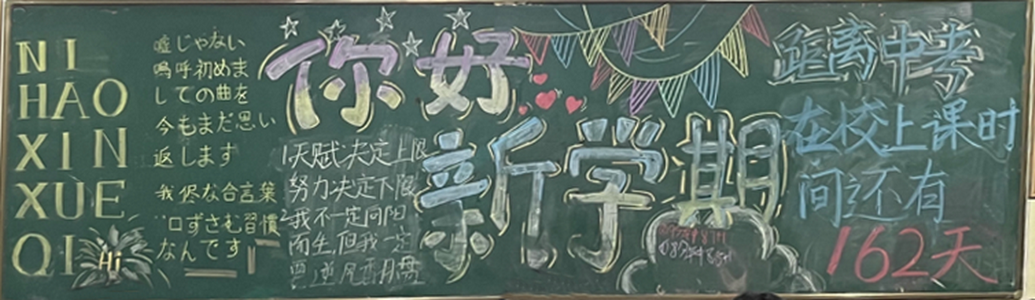 NI
HAO
XIN
XUE
QI
Hi
嘘じゃない
嗚呼初めま
しての曲を
今もまだ思い
返します
我儘な合言葉
口ずさむ習慣
なんです
你好
新学期
1天赋决定上限
努力决定下限
2我不一定向阳
而生,但我一定
距离中考
在校上课时
间还有
162天